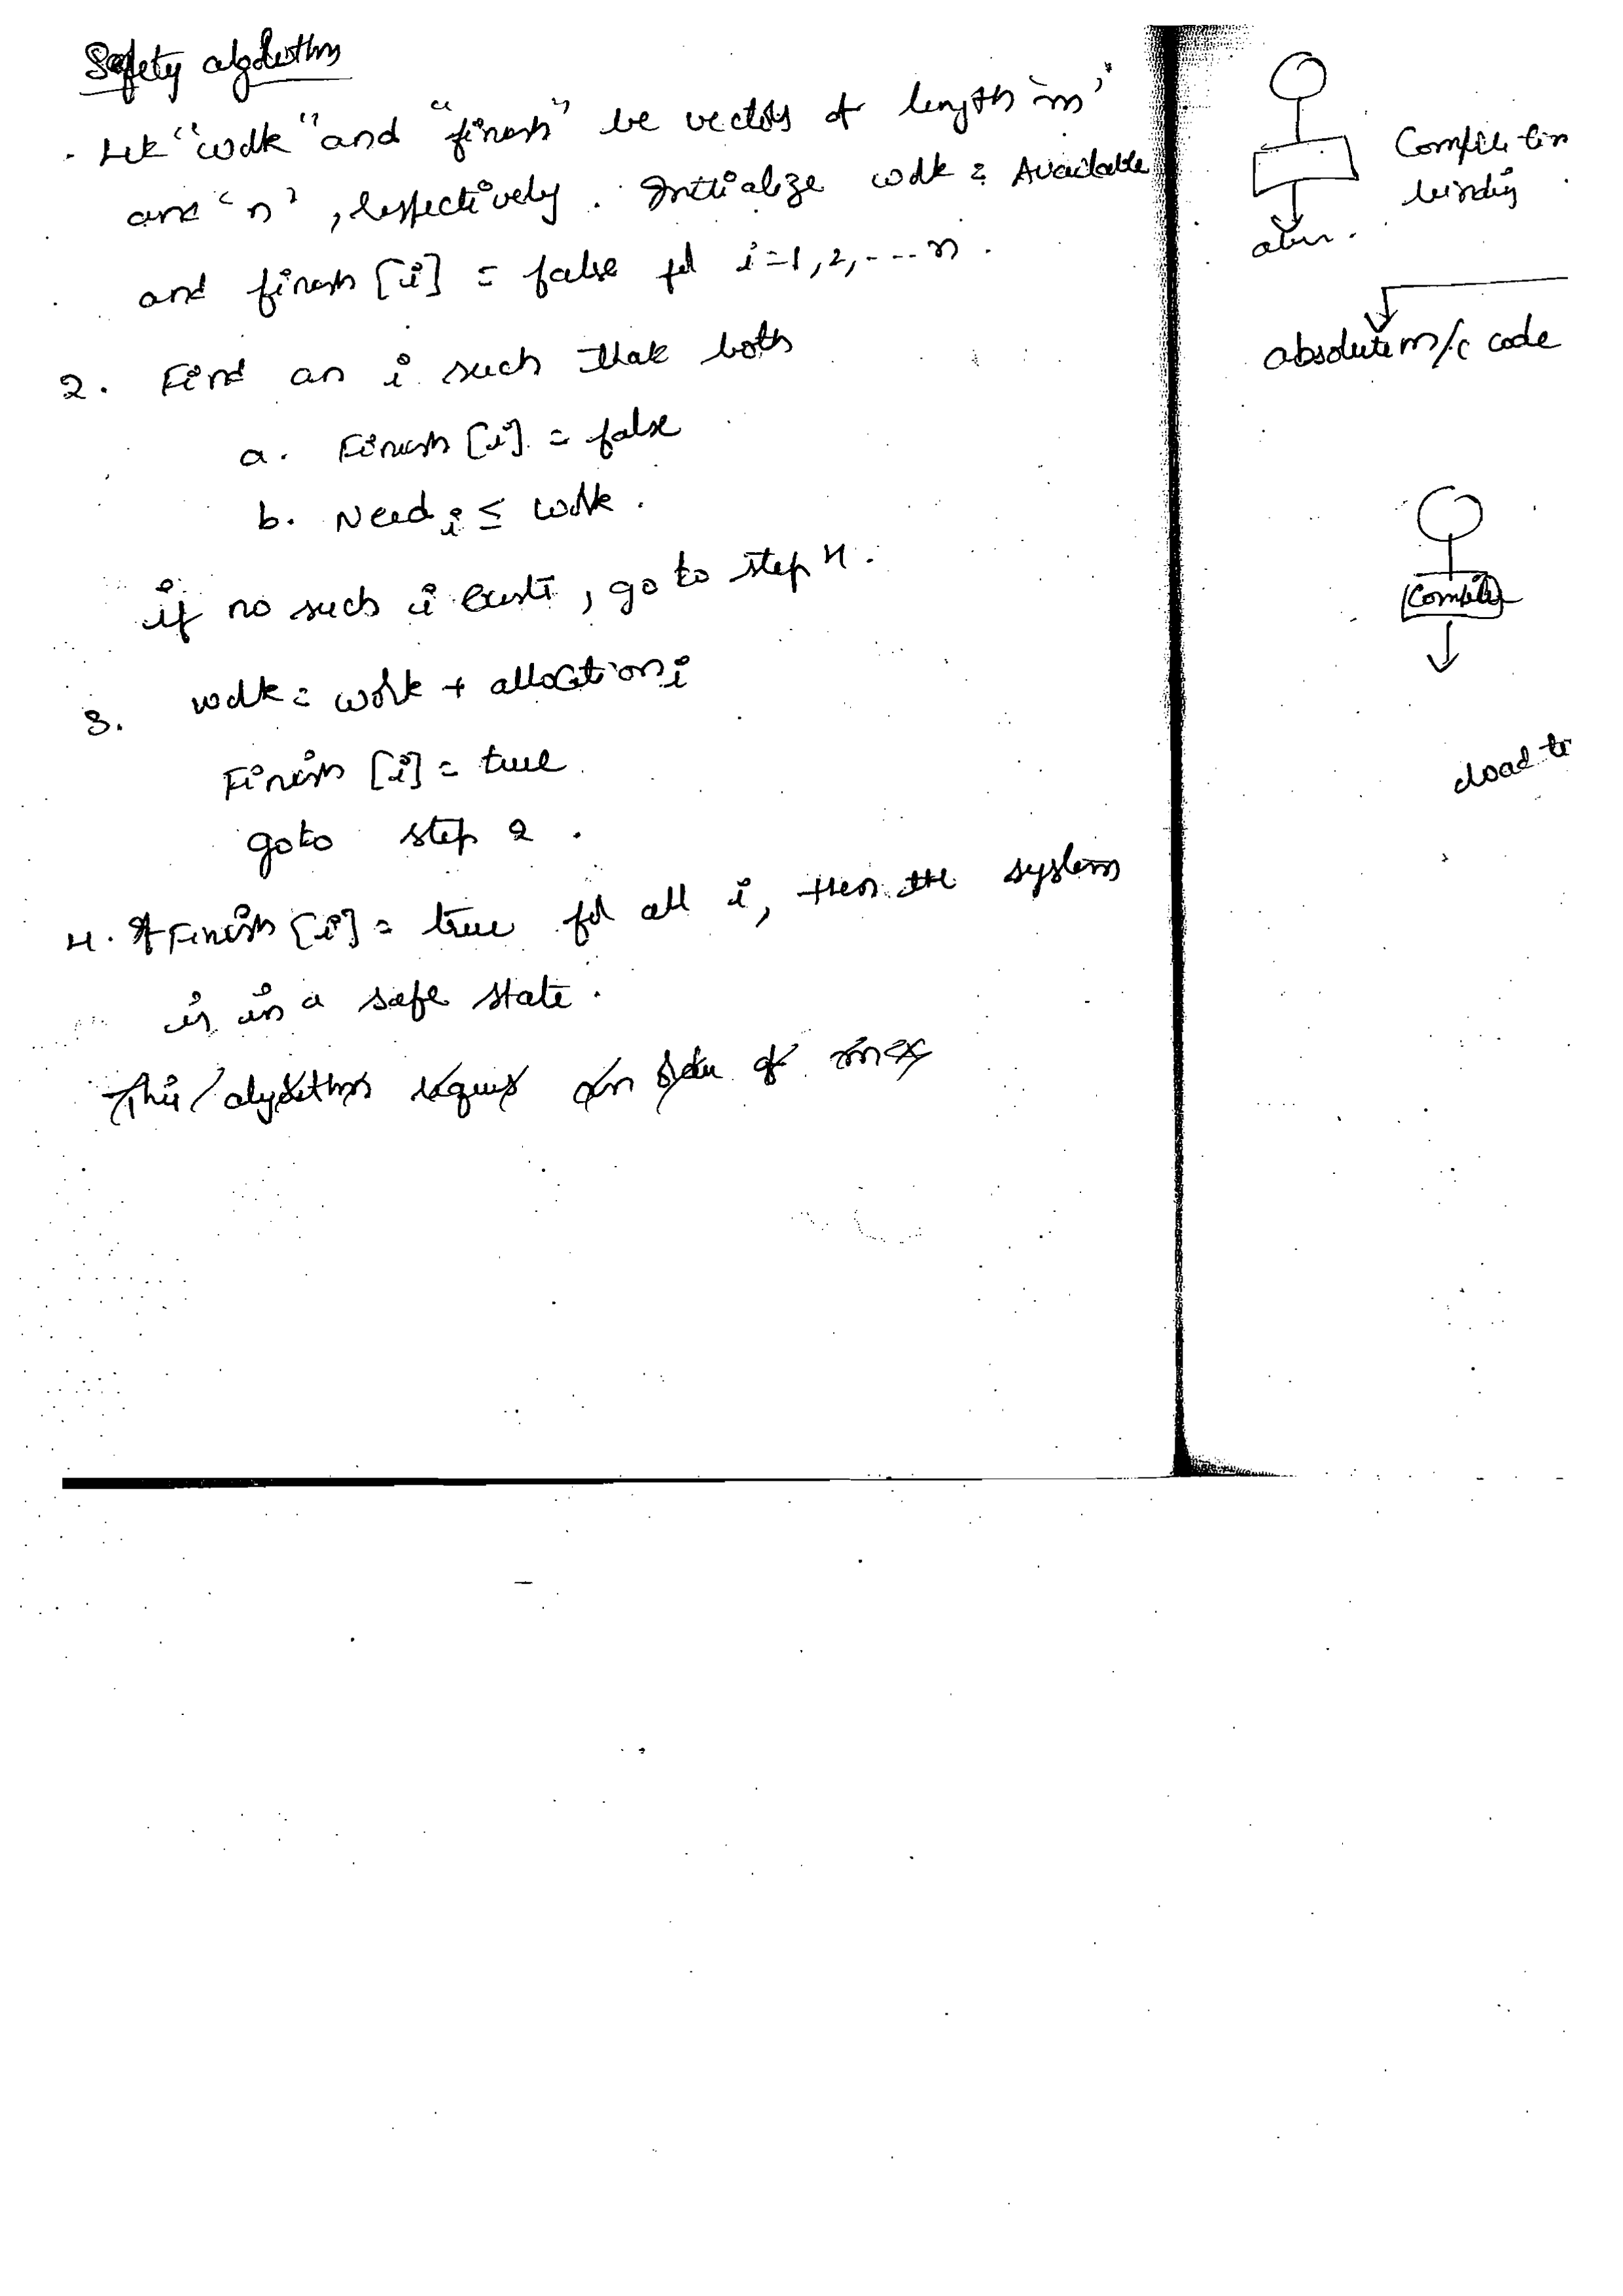 Safety algorithm
. Let "work" and "finish" be vectors of length 'm'
and 'n', respectively. Initialize work = Available
and finish [i] = false for i=1,2,---n.
2. Find an i such that both
a. Finish [i] = false
b. Need i ≤ work.
if no such i exists, go to step 4.
3. work = work + allocation i
Finish [i] = true
goto step 2.
4. If Finish [i] = true for all i, then the system
is in a safe state.
This algorithm requires an order of
Compile tim
binding
absolute m/c code
Compiler
load ti